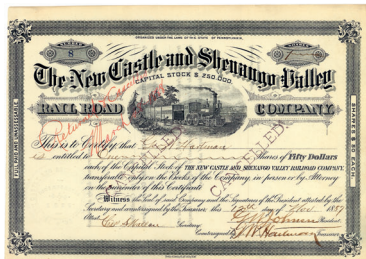 ORGANIZED UNDER THE LAWS OF THE STATE OF PENNSYLVANIA.
NUMBER
8
SHARES
The New Castle and Shenango Valley
CAPITAL STOCK $ 250.000.
RAIL ROAD COMPANY.
FULL PAID AND UNASSESSABLE
SHARES $ 50 EACH
CANCELLED
This is to Certify that
is entitled to Shares of Fifty Dollars
each of the Capital Stock of THE NEW CASTLE AND SHENANGO VALLEY RAILROAD COMPANY,
transferable only on the Books of the Company, in person or by Attorney
on the surrender of this Certificate
Witness the Seal of said Company and the Signatures of the President attested by the
Secretary and countersigned by the Treasurer this day of Nov 1887
Attest Secretary President
Countersigned Treasurer